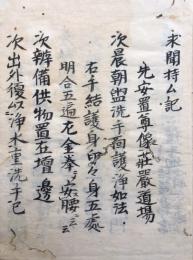 求聞持ム記
先安置尊像莊嚴道場
次晨朝盥洗手面護淨如法
右手結護身印々身五處
明合五遍左金拳安腰
次辨備供物置五壇邊
次出外復以淨水重洗手已